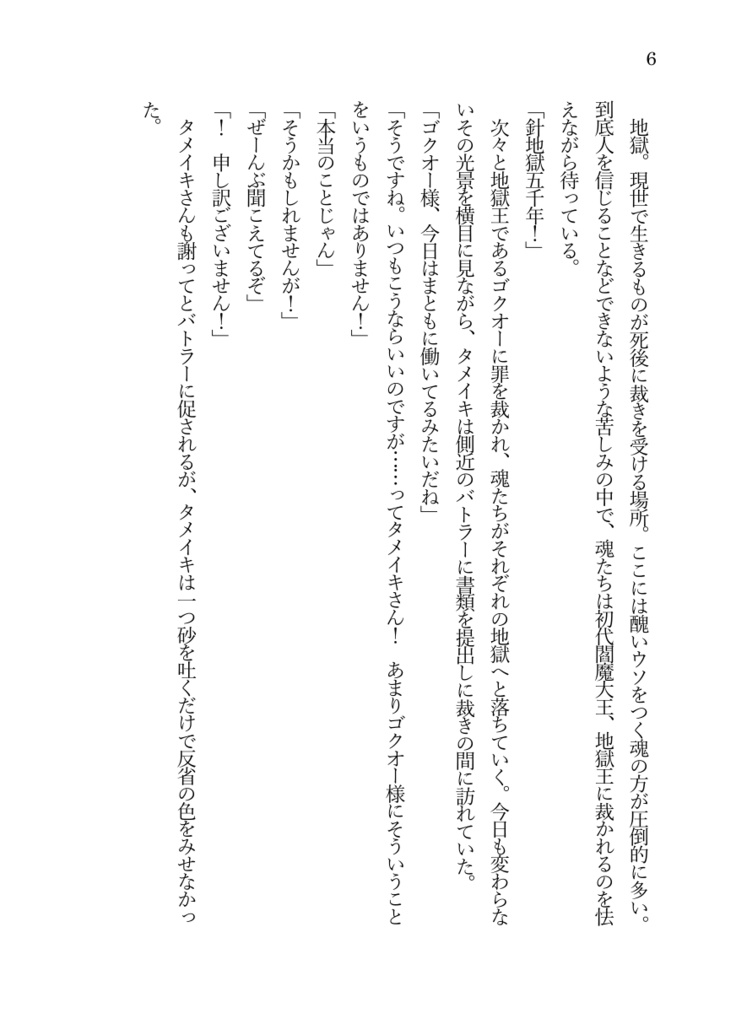 6
　地獄。現世で生きるものが死後に裁きを受ける場所。ここには醜いウソをつく魂の方が圧倒的に多い。
到底人を信じることなどできないような苦しみの中で、魂たちは初代閻魔大王、地獄王に裁かれるのを怯
えながら待っている。
「針地獄五千年！」
　次々と地獄王であるゴクオーに罪を裁かれ、魂たちがそれぞれの地獄へと落ちていく。今日も変わらな
いその光景を横目に見ながら、タメイキは側近のバトラーに書類を提出しに裁きの間に訪れていた。
「ゴクオー様、今日はまともに働いてるみたいだね」
「そうですね。いつもこうならいいのですが……ってタメイキさん！　あまりゴクオー様にそういうこと
をいうものではありません！」
「本当のことじゃん」
「そうかもしれませんが！」
「ぜーんぶ聞こえてるぞ」
「！　申し訳ございません！」
　タメイキさんも謝ってとバトラーに促されるが、タメイキは一つ砂を吐くだけで反省の色をみせなかっ
た。